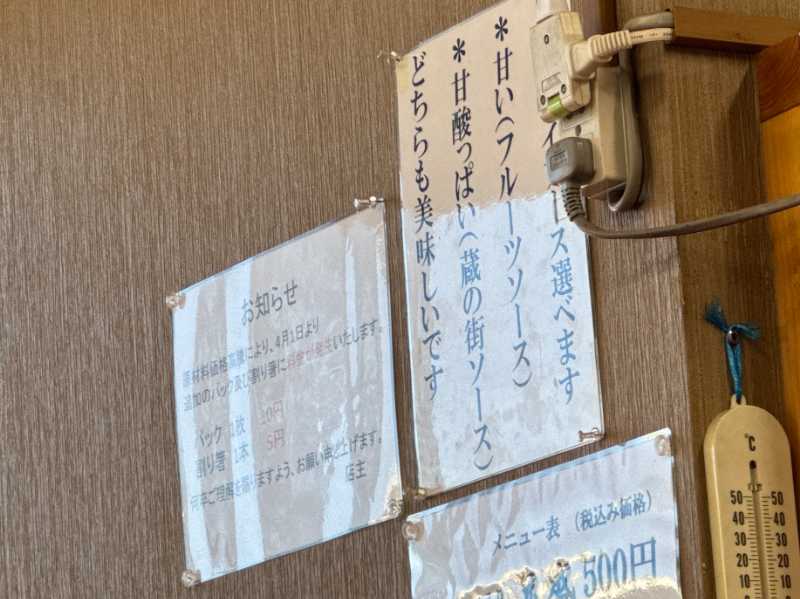 お知らせ
原材料価格高騰により、4月1日より
追加のパック及び割り箸に料金が発生いたします。
パック 1枚 10円
割り箸 1本 5円
何卒ご理解を賜りますよう、お願い申し上げます。
店主
ス選べます
＊甘い(フルーツソース)
＊甘酸っぱい(蔵の街ソース)
どちらも美味しいです
メニュー表 (税込み価格)
500円
℃
50 50
40 40
30 30
20 20
10 10
0 0